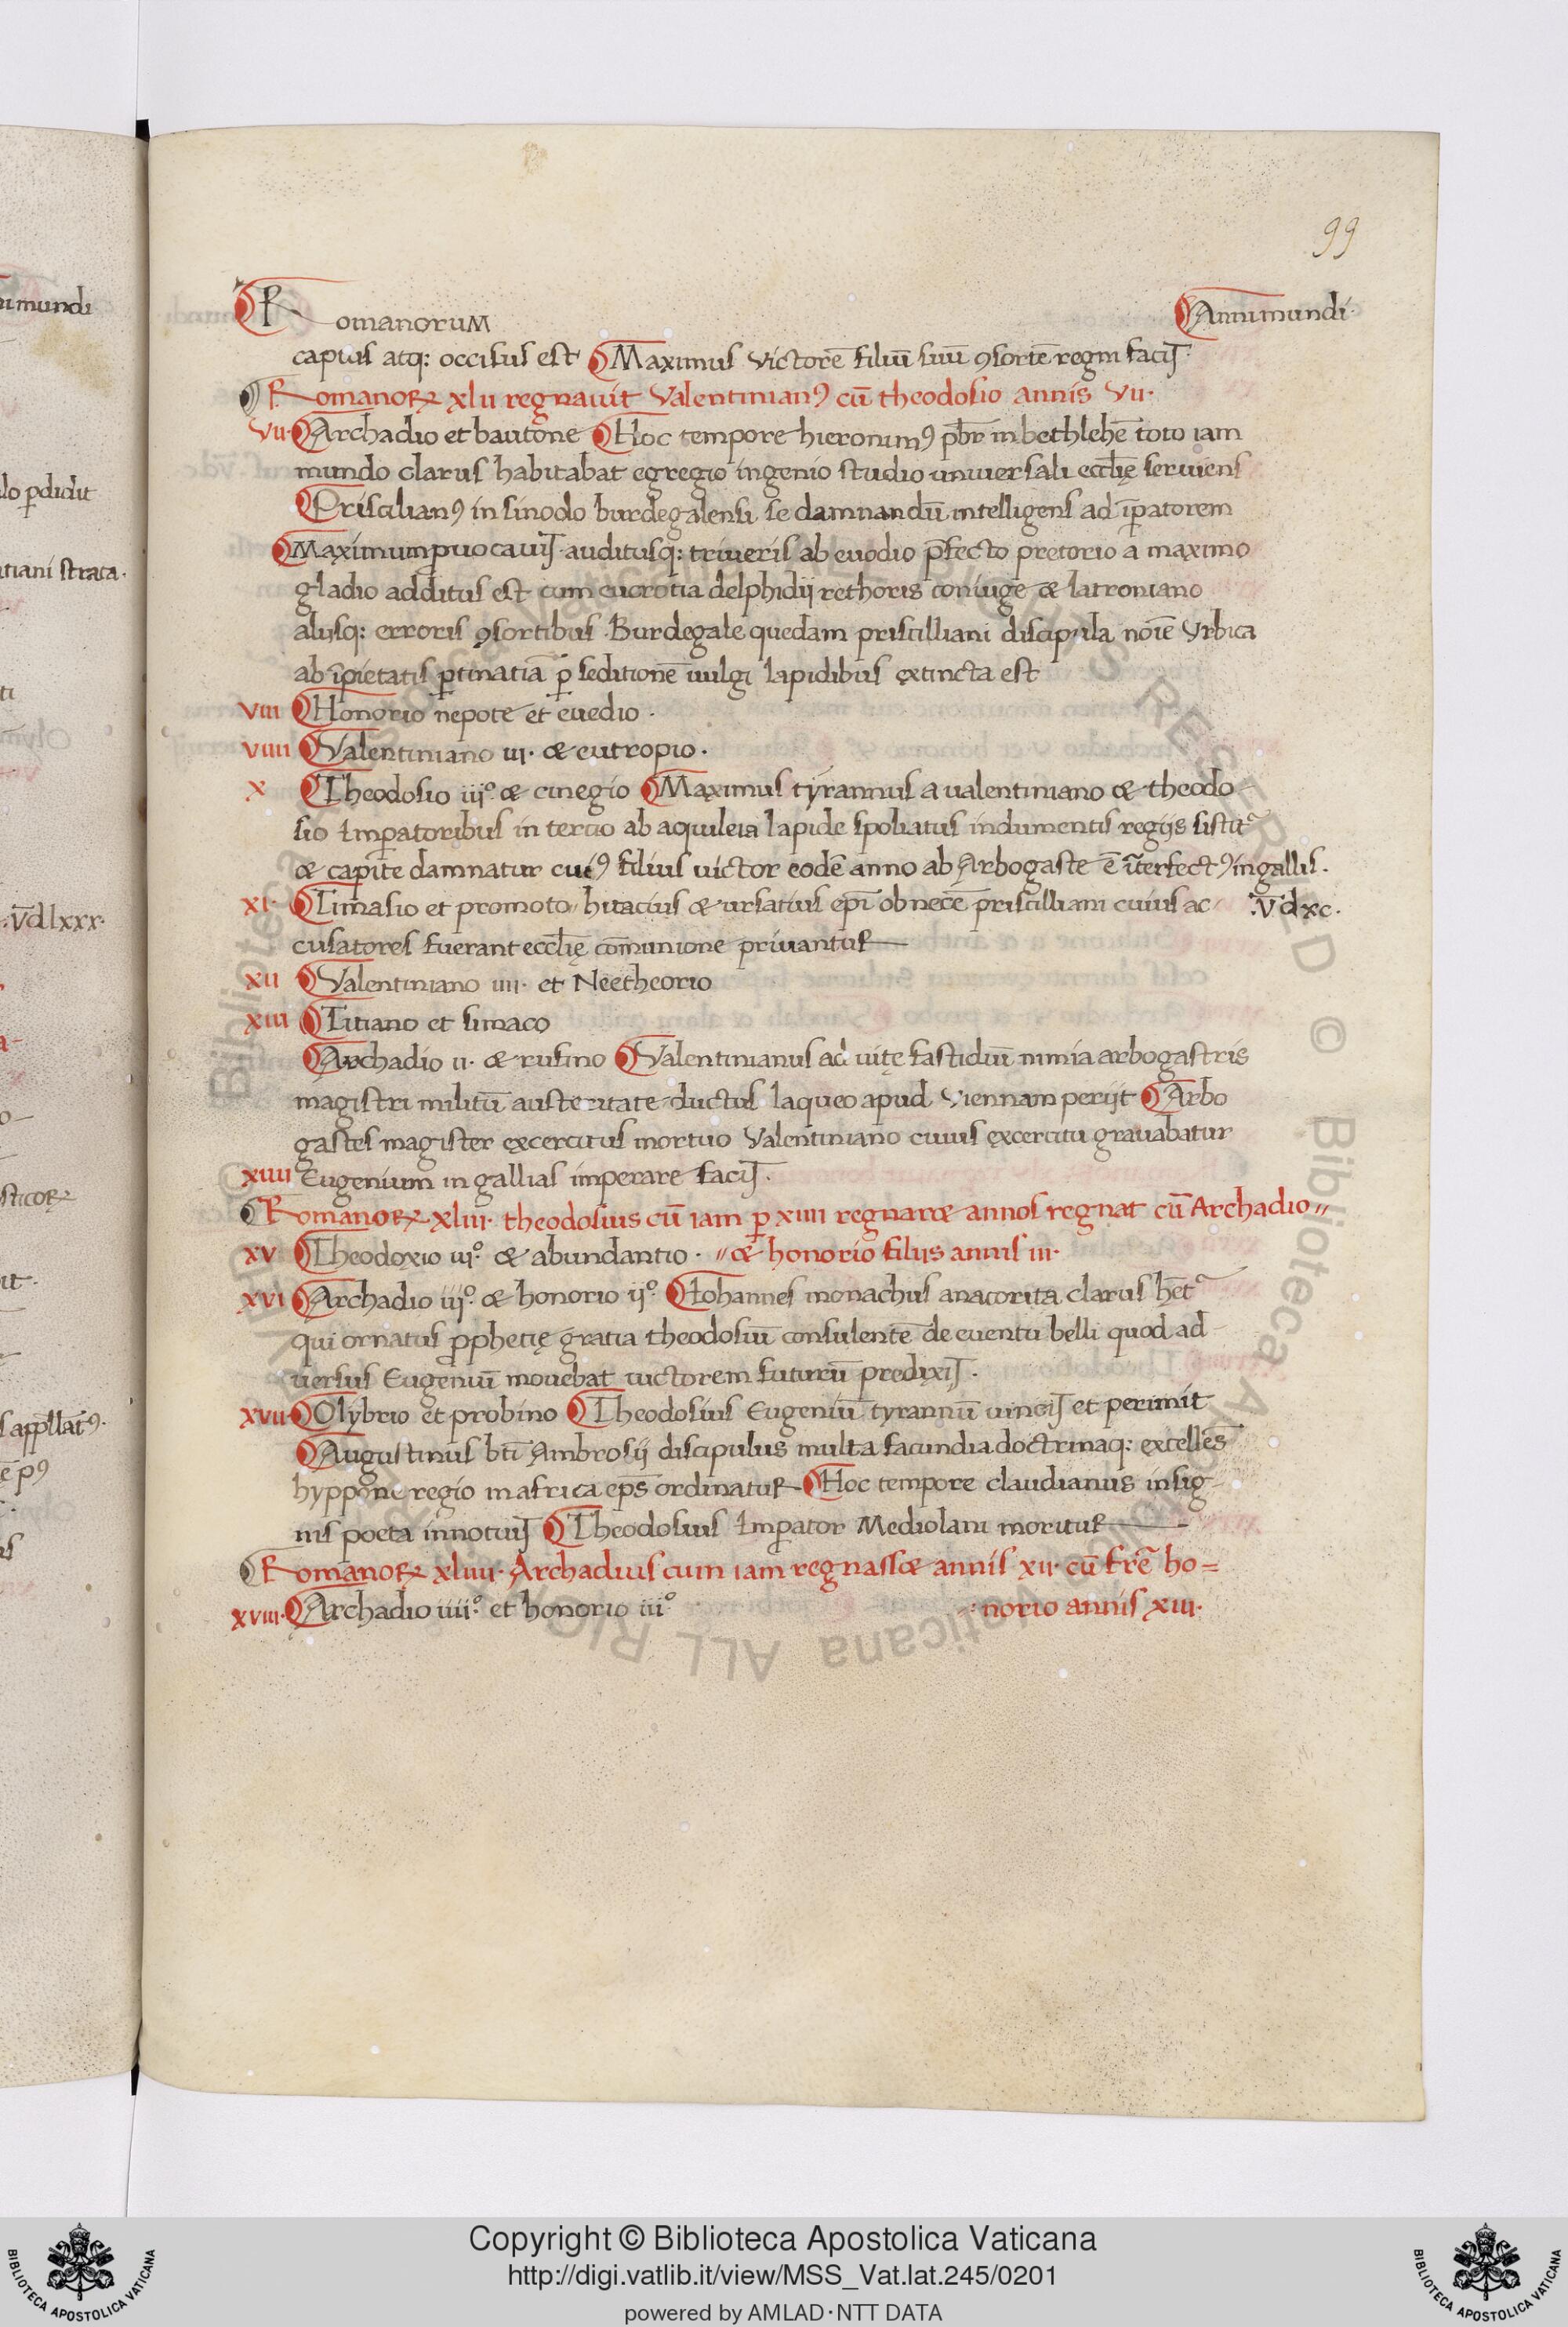 99
Romanorum
Anni mundi
captus atq: occisus est Maximus Victorē filiū suū ꝯsortē regni facit.
Romanoꝝ xlii regnavit Valentinianꝰ cū theodosio annis vii.
vii. Archadio et bautone Hoc tempore hieronimꝰ p̄br̄ in bethlehē toto iam
mundo clarus habitabat egregio ingenio studio universali eccl̄ię serviens
Priscilianꝰ in sinodo burdegalensi se damnandū intelligens ad īp̲atorem
Maximum ꝓvocavit. auditusq: triveris ab evodio p̄fecto pretorio a maximo
gladio additus est cum eucrotia delphidij rethoris coniuge & latroniano
alijsq: erroris ꝯsortibus. Burdegale quedam priscilliani discipula noīe Urbica
ob īpietatis ꝑtinatiā ꝑ seditionē vulgi lapidibus extincta est
viii Honorio nepote et evedio.
viiii Valentiniano iii. & eutropio.
x Theodosio iijº & cinegio Maximus tyrannus a valentiniano & theodo
sio Imꝑatoribus in tercio ab aquileia lapide spoliatus indumentis regijs sistit᷑
& capite damnatur cuiꝰ filius victor eodē anno ab Arbogaste ē īterfectꝰ in gallis.
xi. Timasio et promoto hitacius & ursatius ep̄i ob necē priscilliani cuius ac
.v̄dxc.
cusatores fuerant eccl̄ię cōmunione privantur
xii Valentiniano iiii. et Neetheorio
xiii Titiano et simaco
Archadio ii. & rufino Valentinianus ad vitę fastidiū nimia arbogastris
magistri militū austeritate ductus laqueo apud Viennam perijt Arbo
gastes magister excercitus mortuo Valentiniano cuius excercitu gravabatur
xiiii Eugenium in gallias imperare facit.
Romanoꝝ xliii. theodosius cū iam ꝑ xiiii regnar& annos regnat cū Archadio //
xv Theodoxio iii.º & abundantio. // & honorio filiis annis iii.
xvi Archadio iijº. & honorio ijº. Iohannes monachus anacorita clarus het᷑
qui ornatus ꝓphetię gratia theodosiū consulentē de eventu belli quod ad
versus Eugeniū movebat victorem futurū predixit.
xvii Olybrio et probino Theodosius Eugeniū tyrannū vincit et perimit
Augustinus bt̄i Ambrosij discipulus multa facundia doctrinaq: excellēs
hyppone regio in africa ep̄s ordinatur Hoc tempore claudianus insig
nis poeta innotuit Theodosius Imꝑator Mediolani moritur
Romanoꝝ xliiii. Archadius cum iam regnass& annis xii. cū fr̄e ho=
xviii. Archadio iiij.º et honorio iijº
norio annis xiii.
imundi
lo ꝑdidit
tiani strata.
.v̄dlxxx.
sticoꝝ
Copyright © Biblioteca Apostolica Vaticana
http://digi.vatlib.it/view/MSS_Vat.lat.245/0201
powered by AMLAD · NTT DATA
BIBLIOTECA APOSTOLICA VATICANA
BIBLIOTECA APOSTOLICA VATICANA